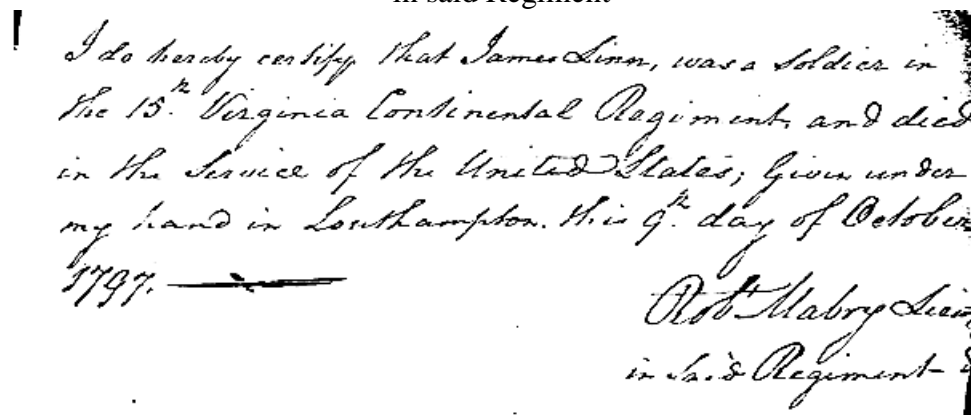 in said Regiment
I do hereby certify that James Linn, was a Soldier in
the 15.th Virginia Continental Regiment, and died
in the Service of the United States; Given under
my hand in Southampton. this 9.th day of October
1797.
Robt Mabry Lieu
in Said Regiment